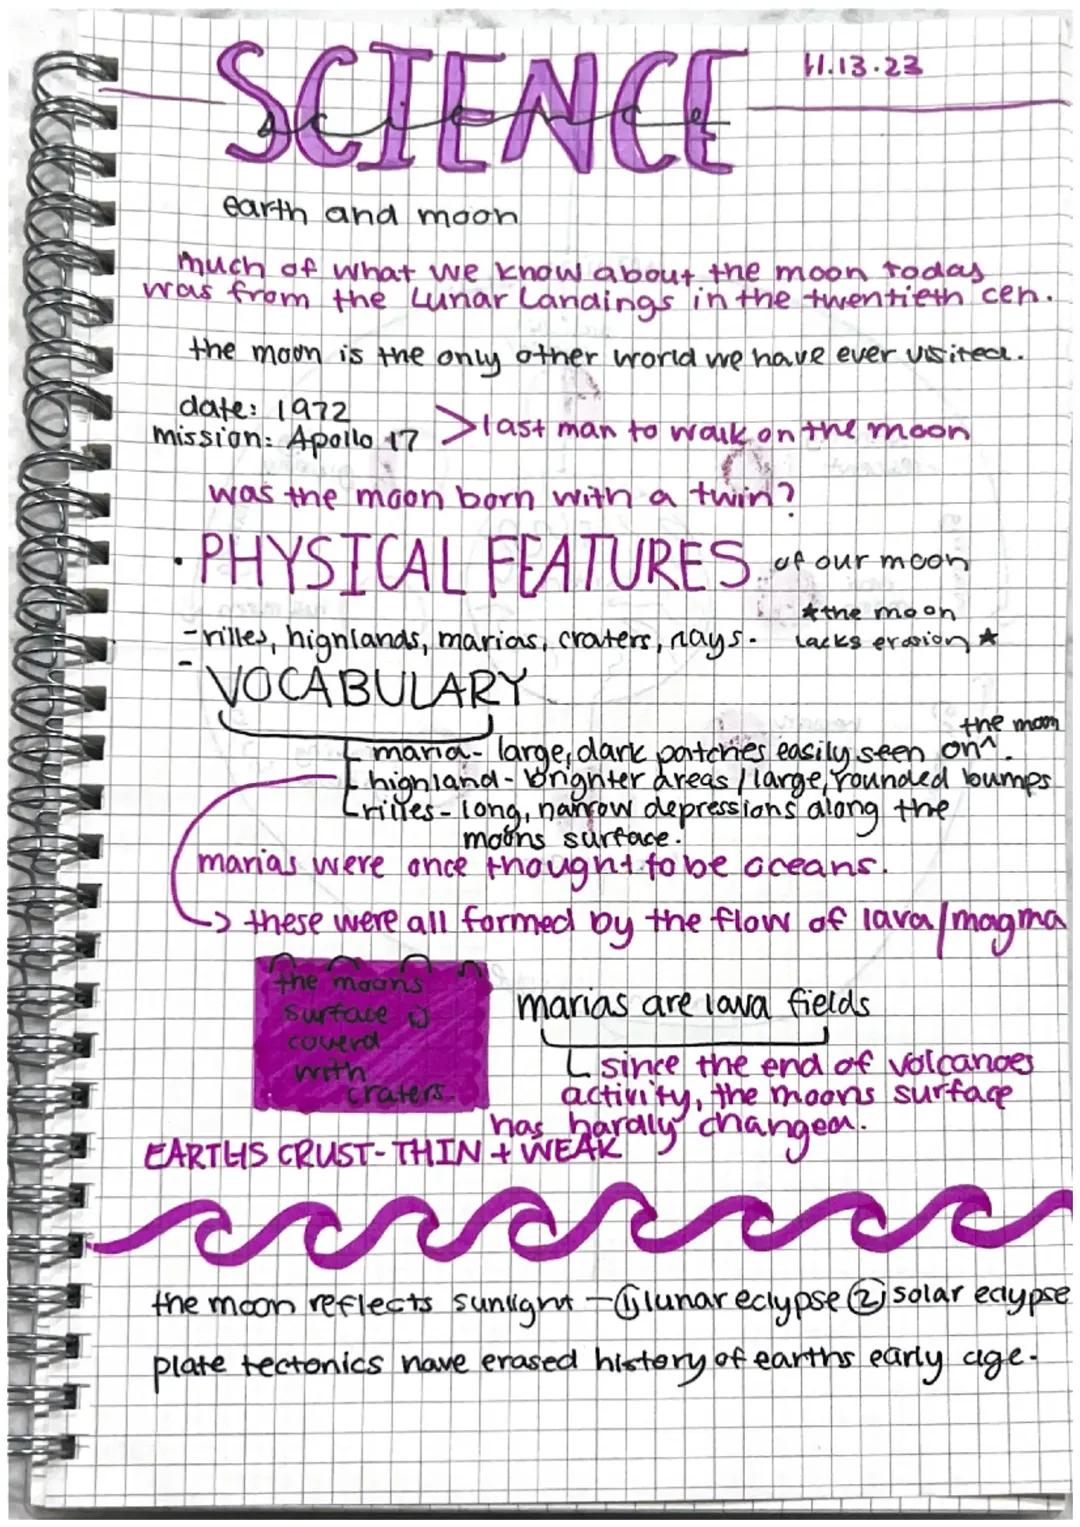 SCIENCE
science
11.13.23
earth and moon
much of what we know about the moon today
was from the Lunar Landings in the twentieth cen.
the moon is the only other world we have ever visited.
date: 1972
mission: Apollo 17 > last man to walk on the moon
was the moon born with a twin?
· PHYSICAL FEATURES of our moon
- rilles, highlands, marias, craters, rays.
★the moon
lacks erosion★
- VOCABULARY
maria - large, dark patches easily seen on^. the moon
highland - brighter areas / large, rounded bumps
rilles - long, narrow depressions along the
moons surface.
marias were once thought to be oceans.
→ these were all formed by the flow of lava/magma
the moons
surface is
coverd
with
craters.
marias are lava fields
since the end of volcanoes
activity, the moons surface
has hardly changed.
EARTHS CRUST - THIN + WEAK
the moon reflects sunlight - ① lunar eclypse ② solar eclypse
plate tectonics have erased history of earths early age.